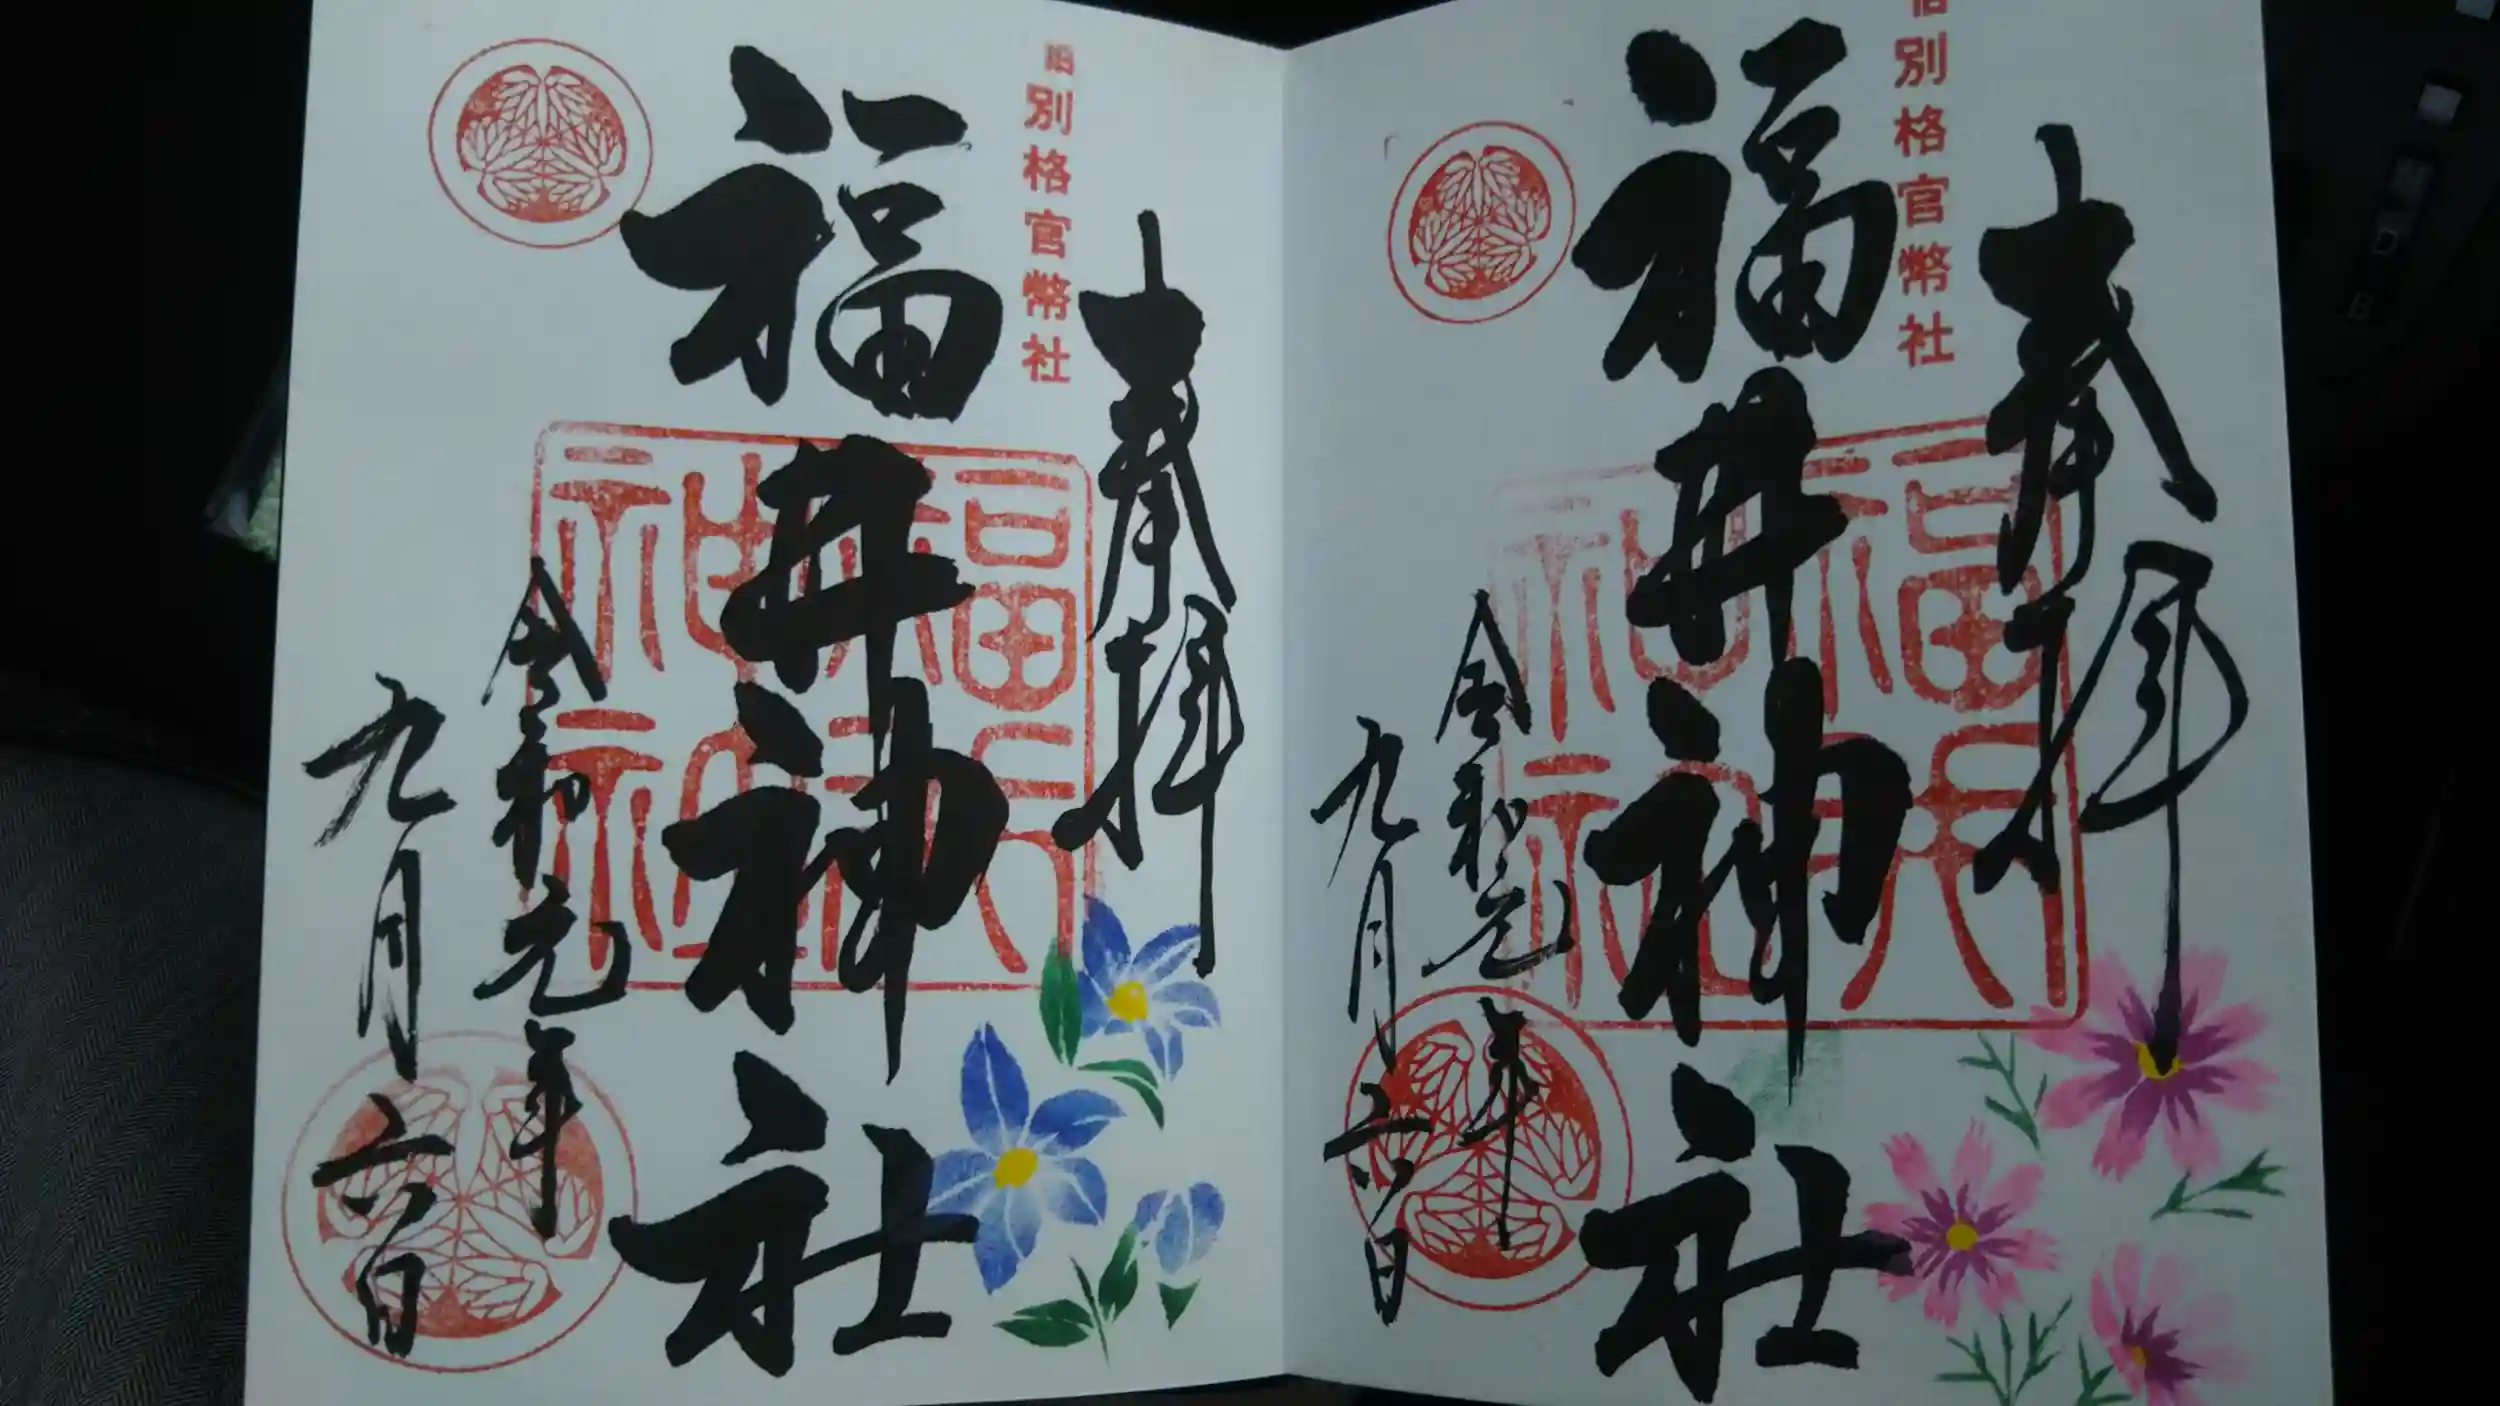 旧別格官幣社
奉拝
福井神社
福井神社
令和元年
九月六日
旧別格官幣社
奉拝
福井神社
令和元年
九月六日